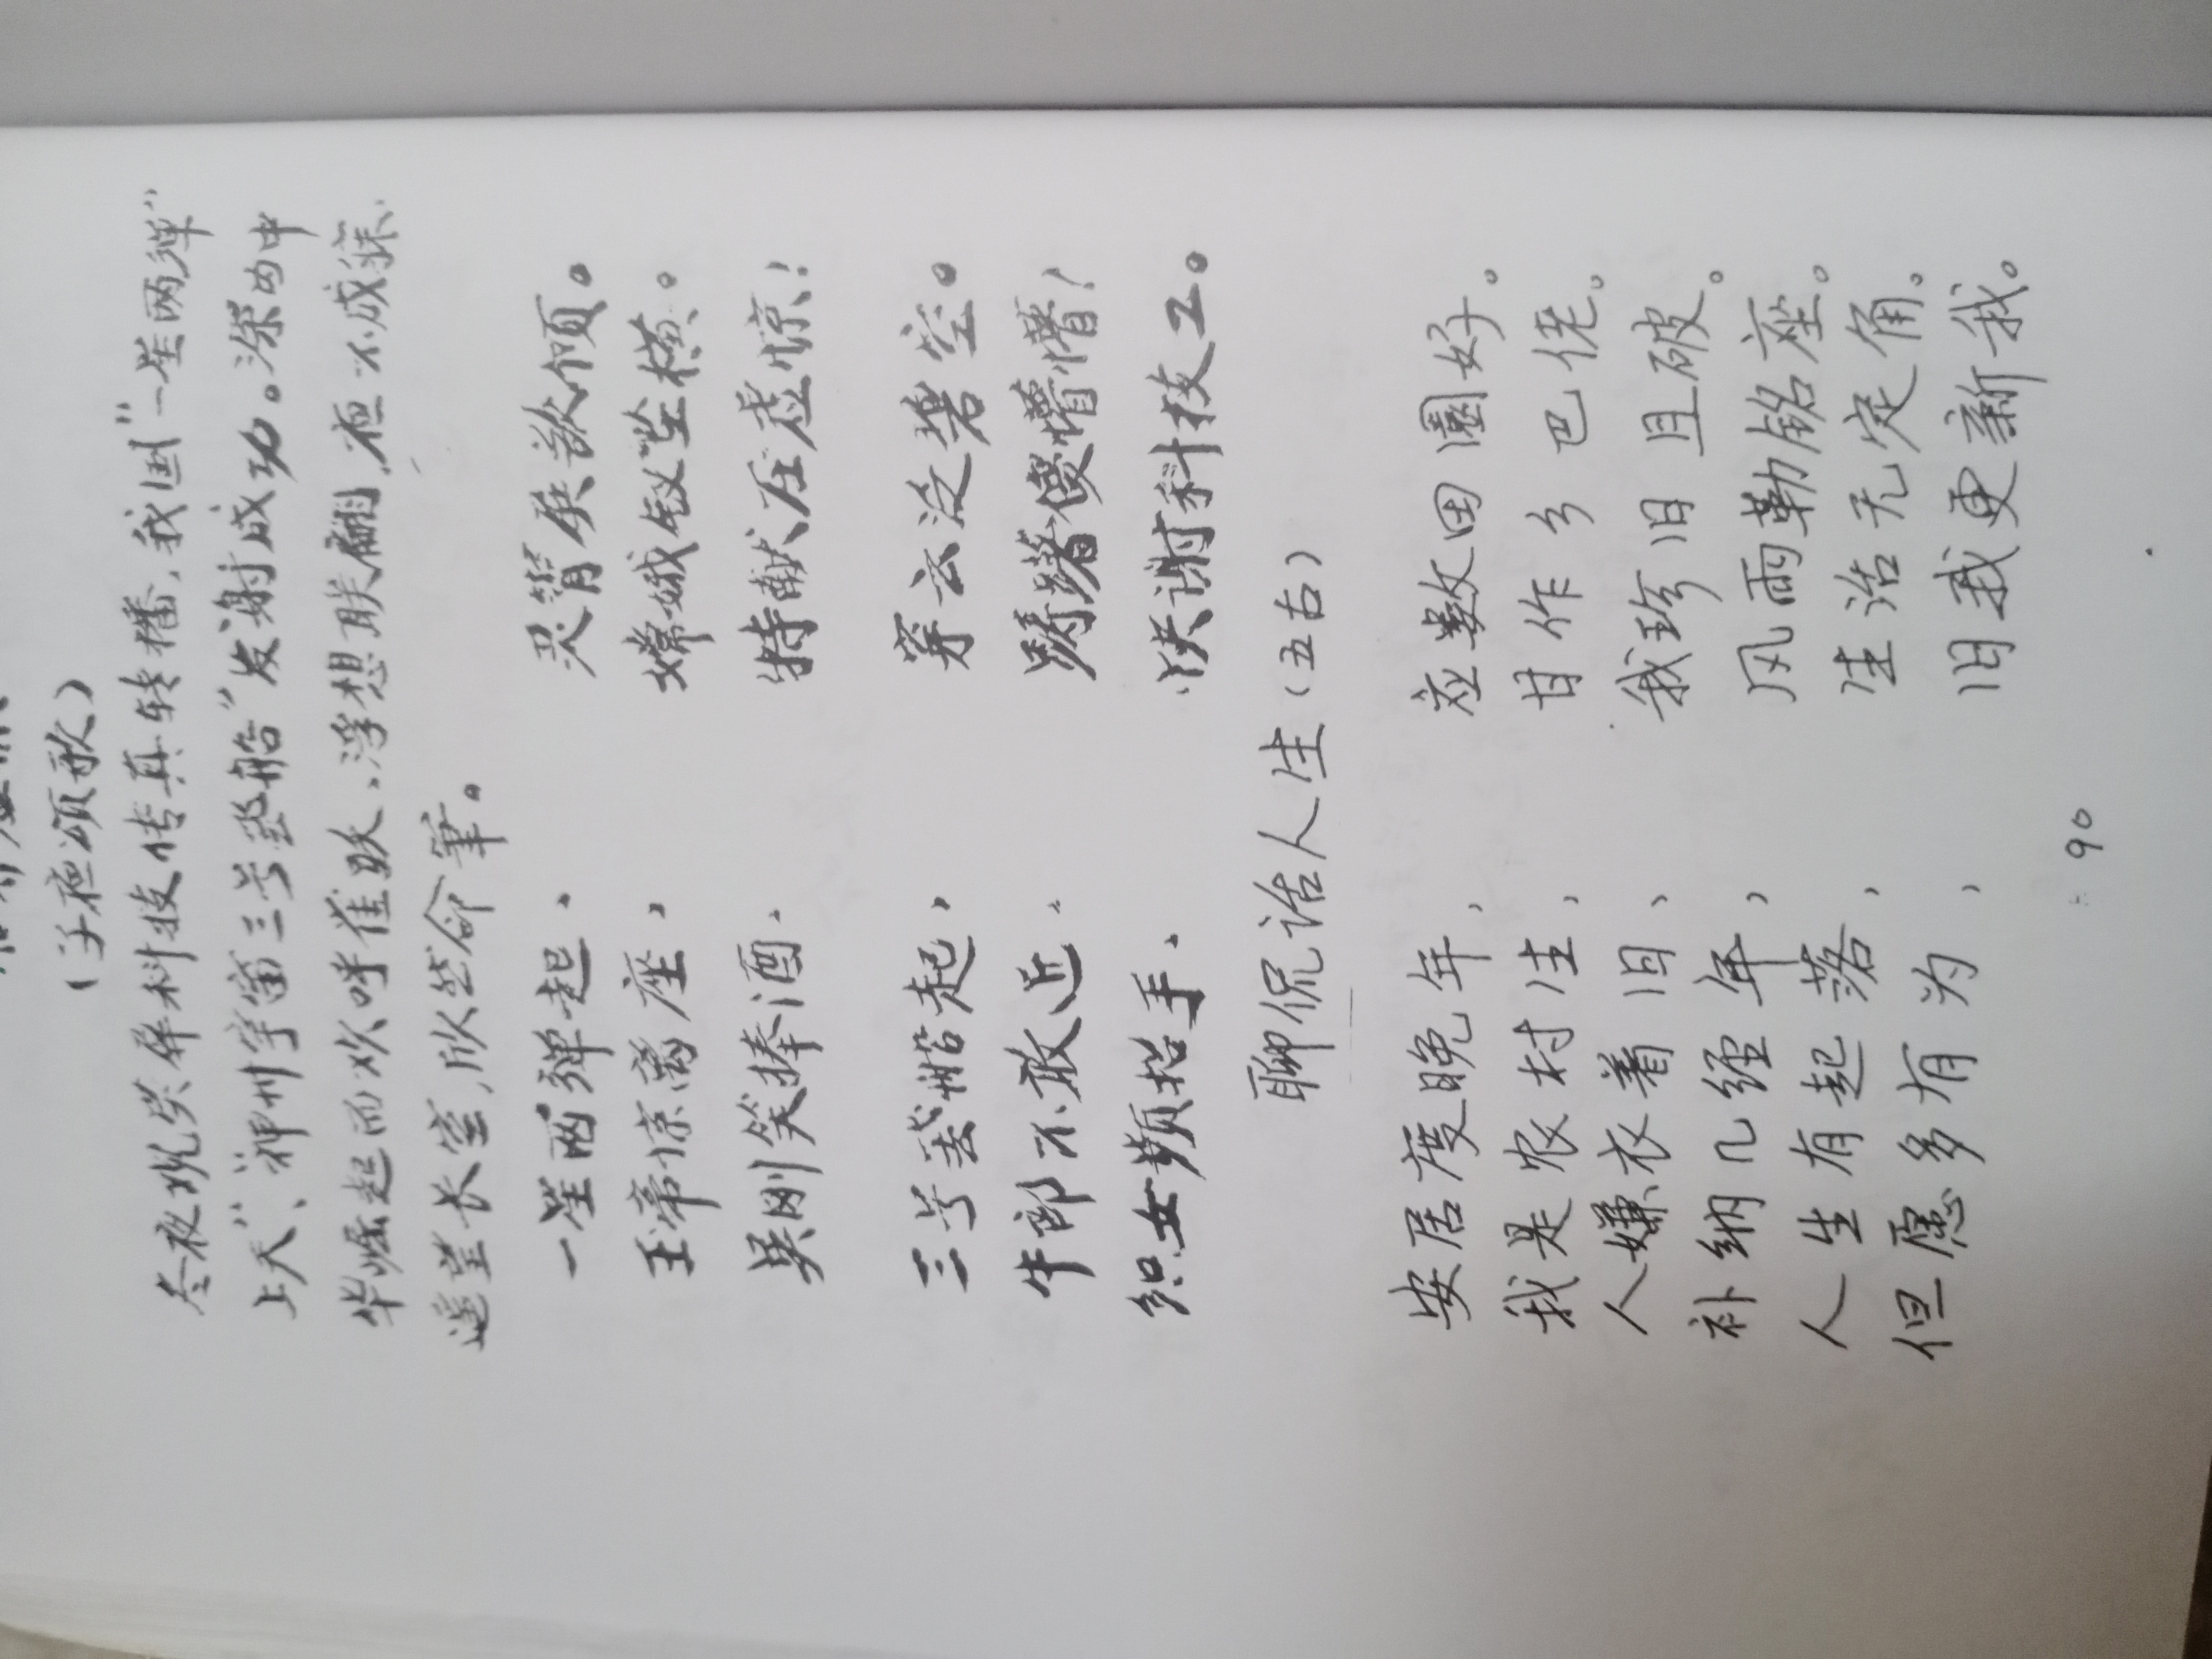 (子夜颂歌)
冬夜观荧屏科技传真转播，我国"一星两弹"
上天"、"神州宇宙三号飞船"发射成功。深为中
华崛起而欢呼雀跃、浮想联翩，夜不成寐、
遥望长空，欣然命筆。
一星两弹起、 灵霄候欲倾。
玉帝惊离座， 嫦娥钗坠横。
吴刚笑捧酒、 特献压虚惊！
三号飞船起， 穿云泛碧空。
牛郎不敢近、 踌躇傻懵懵！
织女频招手、 快谢科技工。
聊侃话人生（五古）
安居度晚年， 应数田園好。
我是农村生， 甘作乡巴佬。
人嫌衣着旧、 我珍旧且破。
补纳几经年， 风雨勒铭座。
人生有起落， 生活无定角。
但愿多有为， 旧我更新我。
90